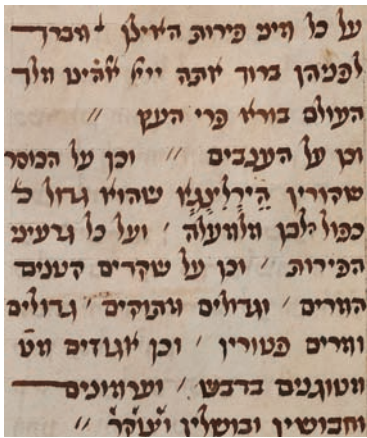 על כל מיני פירות האילן ' מברך
לפניהן ברוך אתה ייי אלהינו מלך
העולם בורא פרי העץ //
וכן על הענבים // וכן על הבוסר
שקורין הירלינגא שהוא גדול כ'
כפול הלבן מלמעלה / ועל כל גרעיני
הפירות / וכן על שקדים קטנים
המרים / וגדולים מתוקים / גדולים
ומרים פטורין / וכן אגוזים מט
מטוגנים בדבש / וערמונים
וחבושין ובושלין //